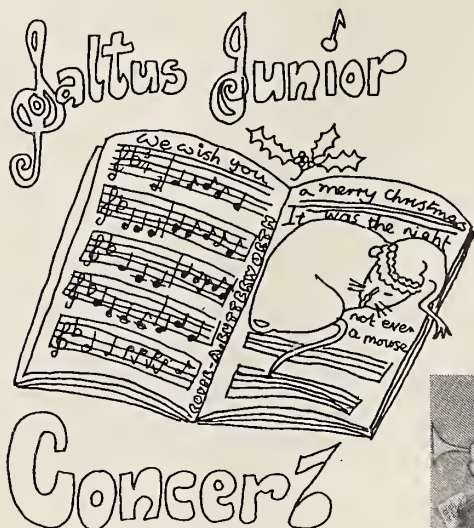 Saltus Junior
We wish you
a merry Christmas
It was the night
not even
a mouse
COVER - A. BUTTERWORTH
Concert